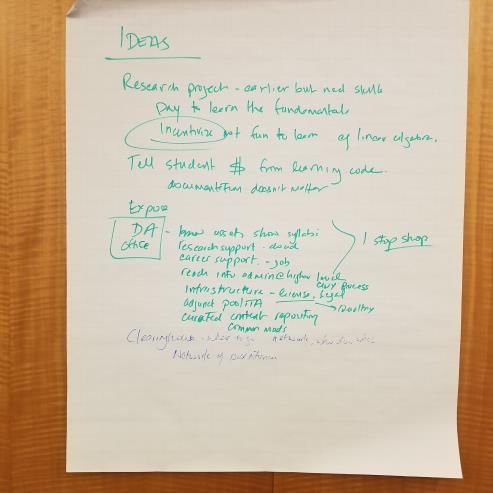 IDEAS
Research project - earlier but need skills
Pay to learn the fundamentals
Incentivize not fun to learn eg linear algebra.
Tell student $ from learning code.
documentation doesn't matter
Expose
DA office
- know assets show syllabi
research support -
career support - job
reach into admin @ higher level
infrastructure - license, legal
adjunct pool/TA
curated content repository
common mods
1 stop shop
Clearinghouse - where to go network,
Network of